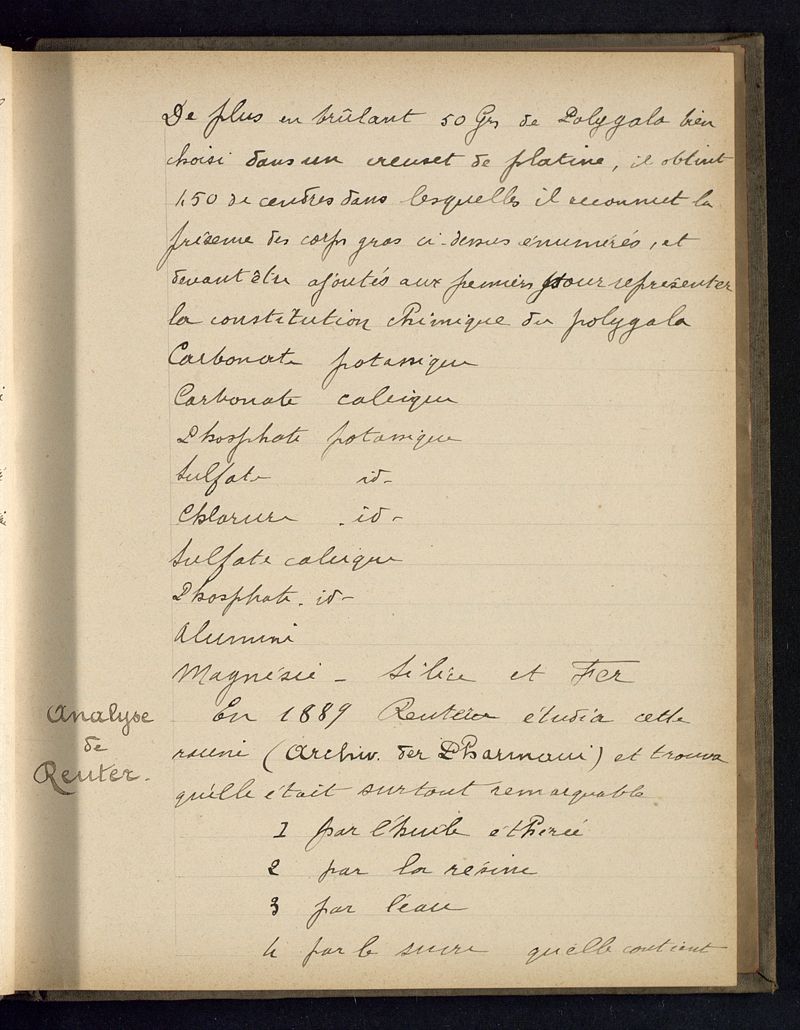 De plus en brûlant 50 Grs de Polygala bien
choisi dans un creuset de platine, il obtint
1.50 de cendres dans lesquelles il reconnut la
présence des corps gras ci-dessus énumérés, et
devant être ajoutés aux premiers pour représenter
la constitution chimique du polygala
Carbonate potassique
Carbonate calcique
Phosphate potassique
Sulfate id-
Chlorure .id-
Sulfate calcique
Phosphate. id-
Alumine
Magnésie - Silice et Fer
Analyse
de
Reuter.
En 1889 Reuter étudia cette
racine (Archiv. der Pharmaci) et trouva
qu'elle était surtout remarquable
1 par l'huile éthérée
2 par la résine
3 par l'eau
4 par le sucre qu'elle contient